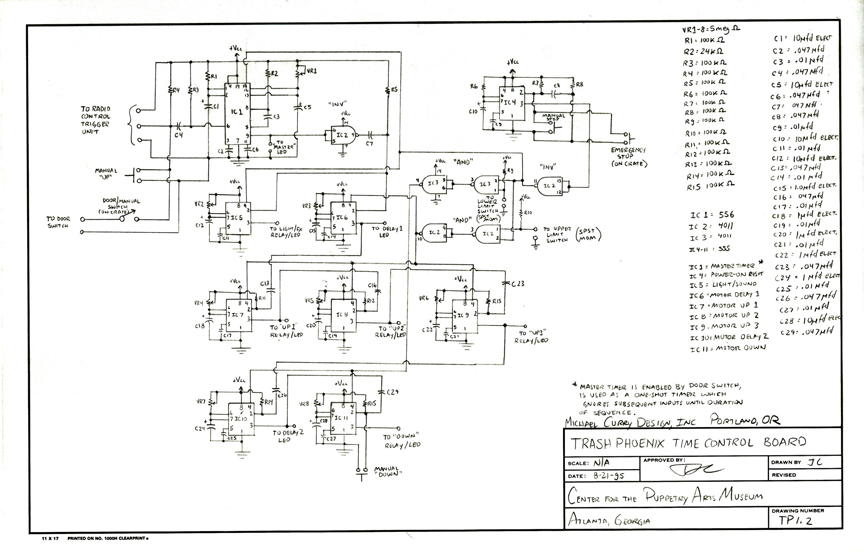 VR1-8=5meg Ω
R1=100K Ω
R2=24K Ω
R3=100K Ω
R4=100K Ω
R5=100K Ω
R6=100K Ω
R7=100K Ω
R8=100K Ω
R9=100K Ω
R10=100K Ω
R11=100K Ω
R12=100K Ω
R13=100K Ω
R14=100K Ω
R15 100K Ω
C1= 10Mfd ELECT
C2= .047Mfd
C3= .01Mfd
C4= .047Mfd
C5= 10Mfd ELECT
C6= .047Mfd
C7= .047 Mfd
C8= .047Mfd
C9= .01Mfd
C10= 10Mfd ELECT.
C11= .01Mfd
C12= 10Mfd ELECT.
C13= .047Mfd
C14= .01Mfd
C15= 1.0Mfd ELECT.
C16= .047Mfd
C17= .01Mfd
C18= 1Mfd ELECT
C19= .01Mfd
C20= 1Mfd ELECT
C21= .01Mfd
C22= 1Mfd ELECT
C23= .047Mfd
C24= 1Mfd ELECT
C25= .01Mfd
C26= .047Mfd
C27= .01Mfd
C28= 10Mfd ELECT
C29= .047Mfd
IC 1= 556
IC 2= 4011
IC 3= 4011
IC4-11= 555
IC1= MASTER TIMER *
IC4= POWER-ON RESET
IC5= LIGHT/SOUND
IC6= MOTOR DELAY 1
IC7= MOTOR UP 1
IC8= MOTOR UP 2
IC9= MOTOR UP 3
IC10= MOTOR DELAY 2
IC11= MOTOR DOWN
TO RADIO
CONTROL
TRIGGER
UNIT
MANUAL
"UP"
DOOR/MANUAL
SWITCH
(ON CRATE)
TO DOOR
SWITCH
+Vcc
R4
R3
R1
R2
VR1
R5
C1
IC1
C3
C5
C4
C2
C6
TO
"MASTER"
LED
"INV"
IC2
C7
+Vcc
R6
IC4
R7
C8
R8
C10
C9
MANUAL
STOP
EMERGENCY
STOP
(ON CRATE)
"AND"
IC3
IC3
R9
"INV"
IC2
TO
LOWER
LIMIT
SWITCH
"AND"
IC2
IC2
R10
+Vcc
TO UPPER
LIMIT
SWITCH
(SPST MOM)
VR2
IC5
C12
C11
TO LIGHT/FX
RELAY/LED
VR3
IC6
TO DELAY1
LED
C13
VR4
IC7
R11
C18
C17
TO "UP1"
RELAY/LED
C16
VR5
IC8
R12
C20
C19
TO "UP2"
RELAY/LED
C23
VR6
IC9
R13
C22
C21
TO "UP3"
RELAY/LED
VR7
IC10
R14
C24
C25
C26
TO DELAY 2
LED
VR8
IC11
R15
C28
C27
C29
TO "DOWN"
RELAY/LED
MANUAL
"DOWN"
* MASTER TIMER IS ENABLED BY DOOR SWITCH,
IS USED AS A ONE-SHOT TIMER WHICH
IGNORES SUBSEQUENT INPUTS UNTIL DURATION
OF SEQUENCE.
MICHAEL CURRY DESIGN, INC PORTLAND, OR
TRASH PHOENIX TIME CONTROL BOARD
SCALE: N/A
APPROVED BY:
DRAWN BY JC
DATE: 8-21-95
REVISED
CENTER FOR THE PUPPETRY ARTS MUSEUM
ATLANTA, GEORGIA
DRAWING NUMBER
TP1.2
11 X 17 PRINTED ON NO. 1000H CLEARPRINT